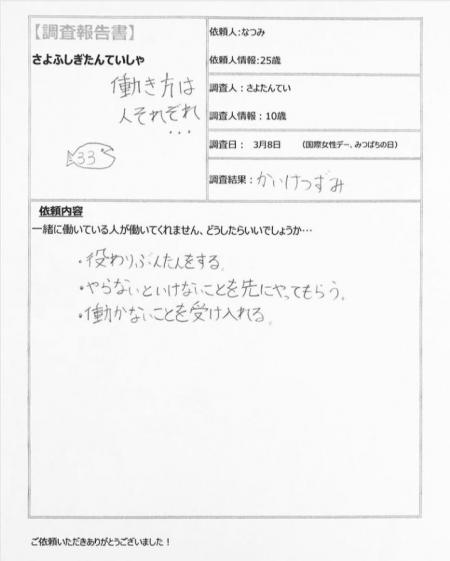 【調査報告書】
さよふしぎたんていしゃ
働き方は
人それぞれ
・・・
33
依頼人:なつみ
依頼人情報:25歳
調査人:さよたんてい
調査人情報:10歳
調査日: 3月8日 (国際女性デー、みつばちの日)
調査結果:かいけつずみ
依頼内容
一緒に働いている人が働いてくれません、どうしたらいいでしょうか…
・役わりぶんたんをする。
・やらないといけないことを先にやってもらう。
・働かないことを受け入れる。
ご依頼いただきありがとうございました!